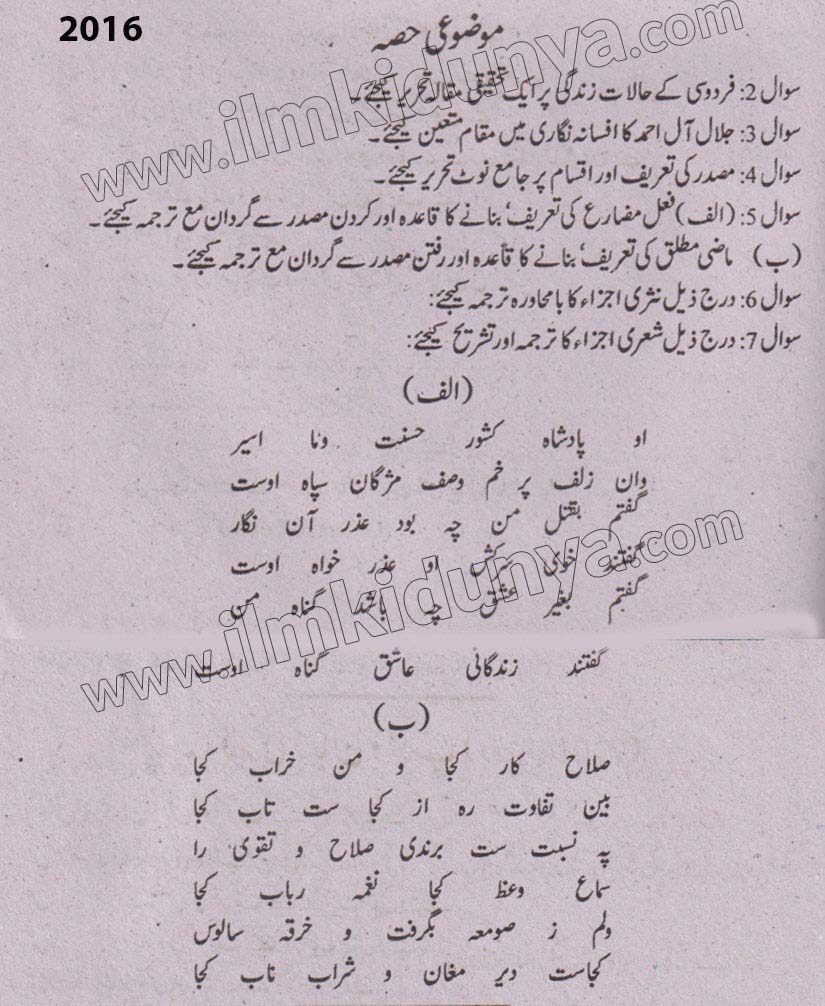 2016
موضوعی حصہ
سوال 2: فردوسی کے حالات زندگی پر ایک تحقیقی مقالہ تحریر کیجئے۔
سوال 3: جلال آل احمد کا افسانہ نگاری میں مقام متعین کیجئے۔
سوال 4: مصدر کی تعریف اور اقسام پر جامع نوٹ تحریر کیجئے۔
سوال 5: (الف) فعل مضارع کی تعریف، بنانے کا قاعدہ اور کردن مصدر سے گردان مع ترجمہ کیجئے۔
(ب) ماضی مطلق کی تعریف، بنانے کا قاعدہ اور رفتن مصدر سے گردان مع ترجمہ کیجئے۔
سوال 6: درج ذیل نثری اجزاء کا بامحاورہ ترجمہ کیجئے:
سوال 7: درج ذیل شعری اجزاء کا ترجمہ اور تشریح کیجئے:
(الف)
او پادشاہ کشور حسنت وما اسیر
وان زلف پر خم وصف مژگان سپاہ اوست
گفتم بقتل من چہ بود عذر آن نگار
گفتند خوی سرکش او عذر خواہ اوست
گفتم بغیر عشق چہ باشد گناہ من
گفتند زندگانی عاشق گناہ اوست
(ب)
صلاح کار کجا و من خراب کجا
بین تفاوت رہ از کجا ست تاب کجا
چہ نسبت ست برندی صلاح و تقوی را
سماع وعظ کجا نغمہ رباب کجا
ولم ز صومعہ بگرفت و خرقہ سالوس
کجاست دیر مغان و شراب ناب کجا
www.ilmkidunya.com
www.ilmkidunya.com